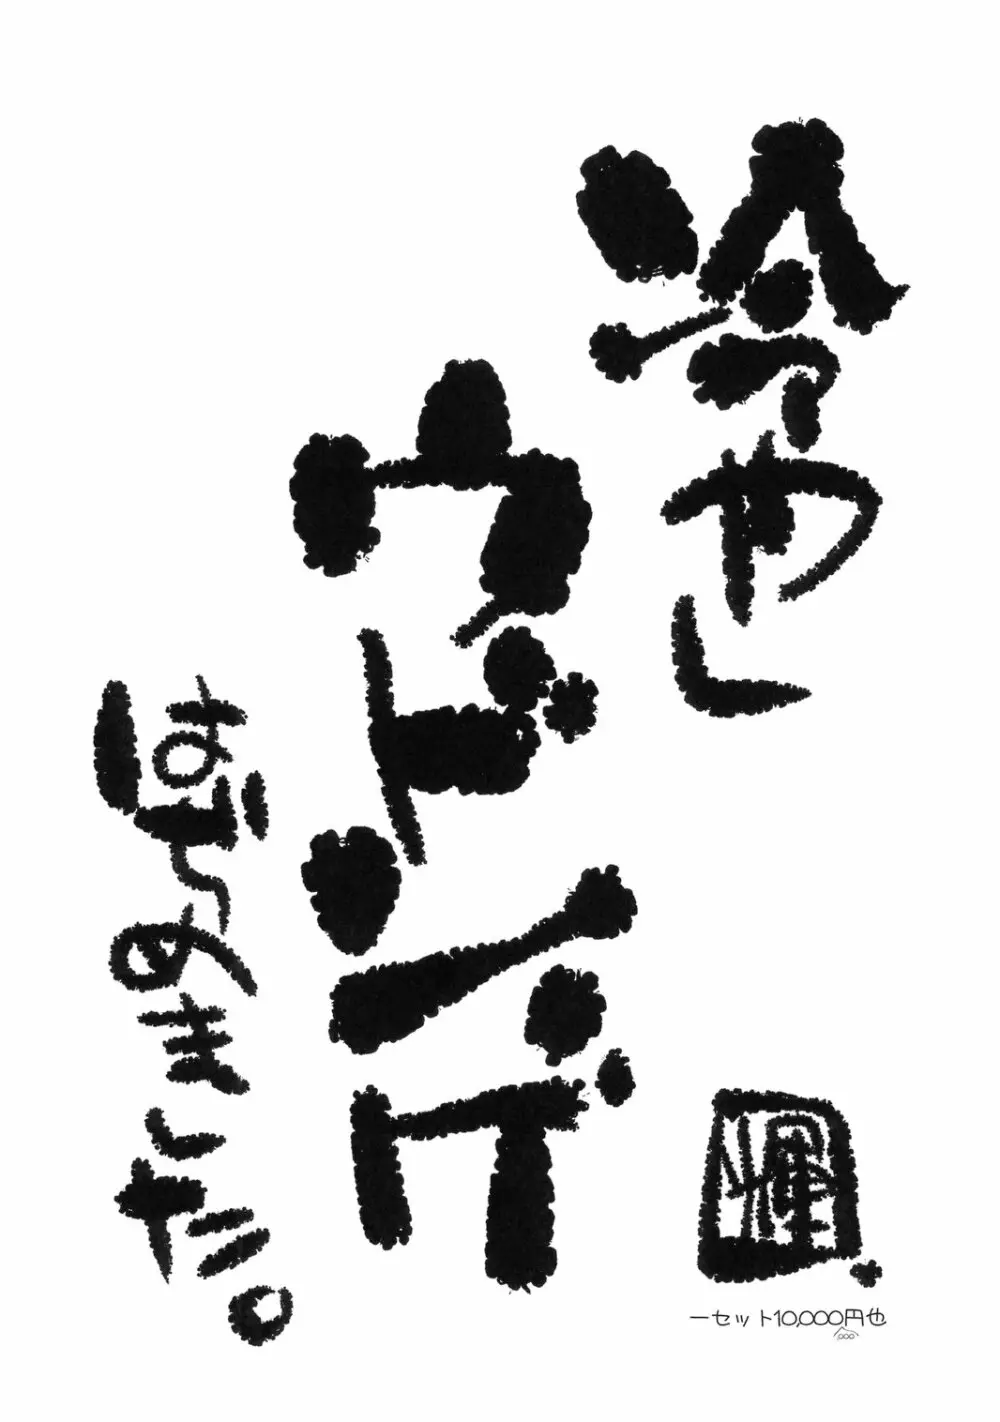 冷やし
ウドンゲ
はじめました。
輝
一セット10,000円也
000